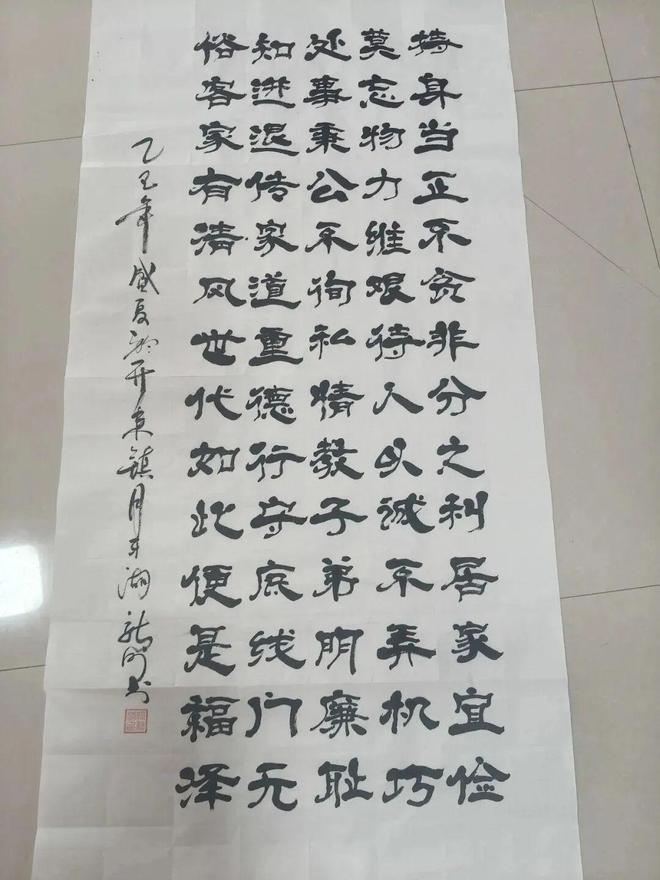 持身当正不贪非分之利居家宜俭
莫忘物力维艰待人以诚不弄机巧
处事秉公不徇私情教子弟明廉耻
知进退传家道重德行守底线门无
俗客家有清风世代如此便是福泽
乙巳年盛夏於开镇月牙湖书